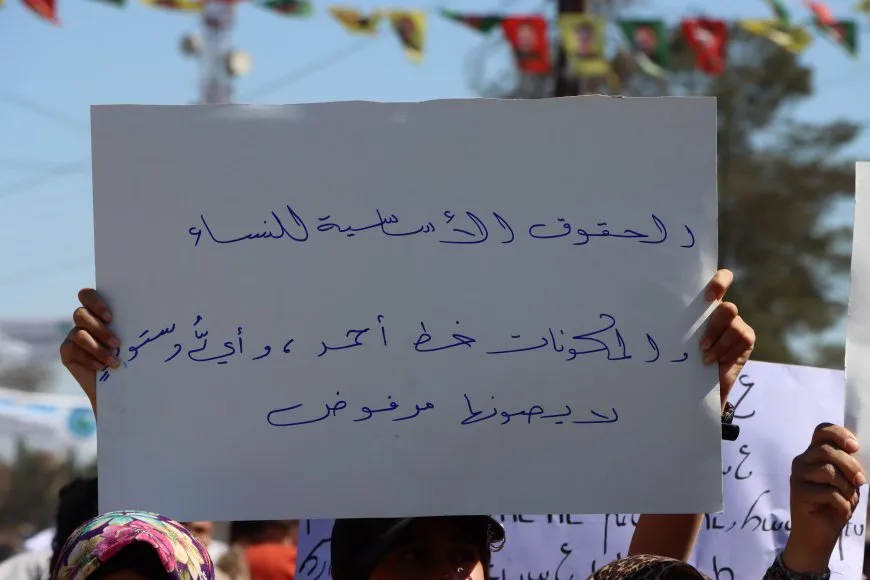 والحقوق الأساسية للنساء
والمكونات خط أحمر، وأيُّ دستورٍ
لا يصونها مرفوض